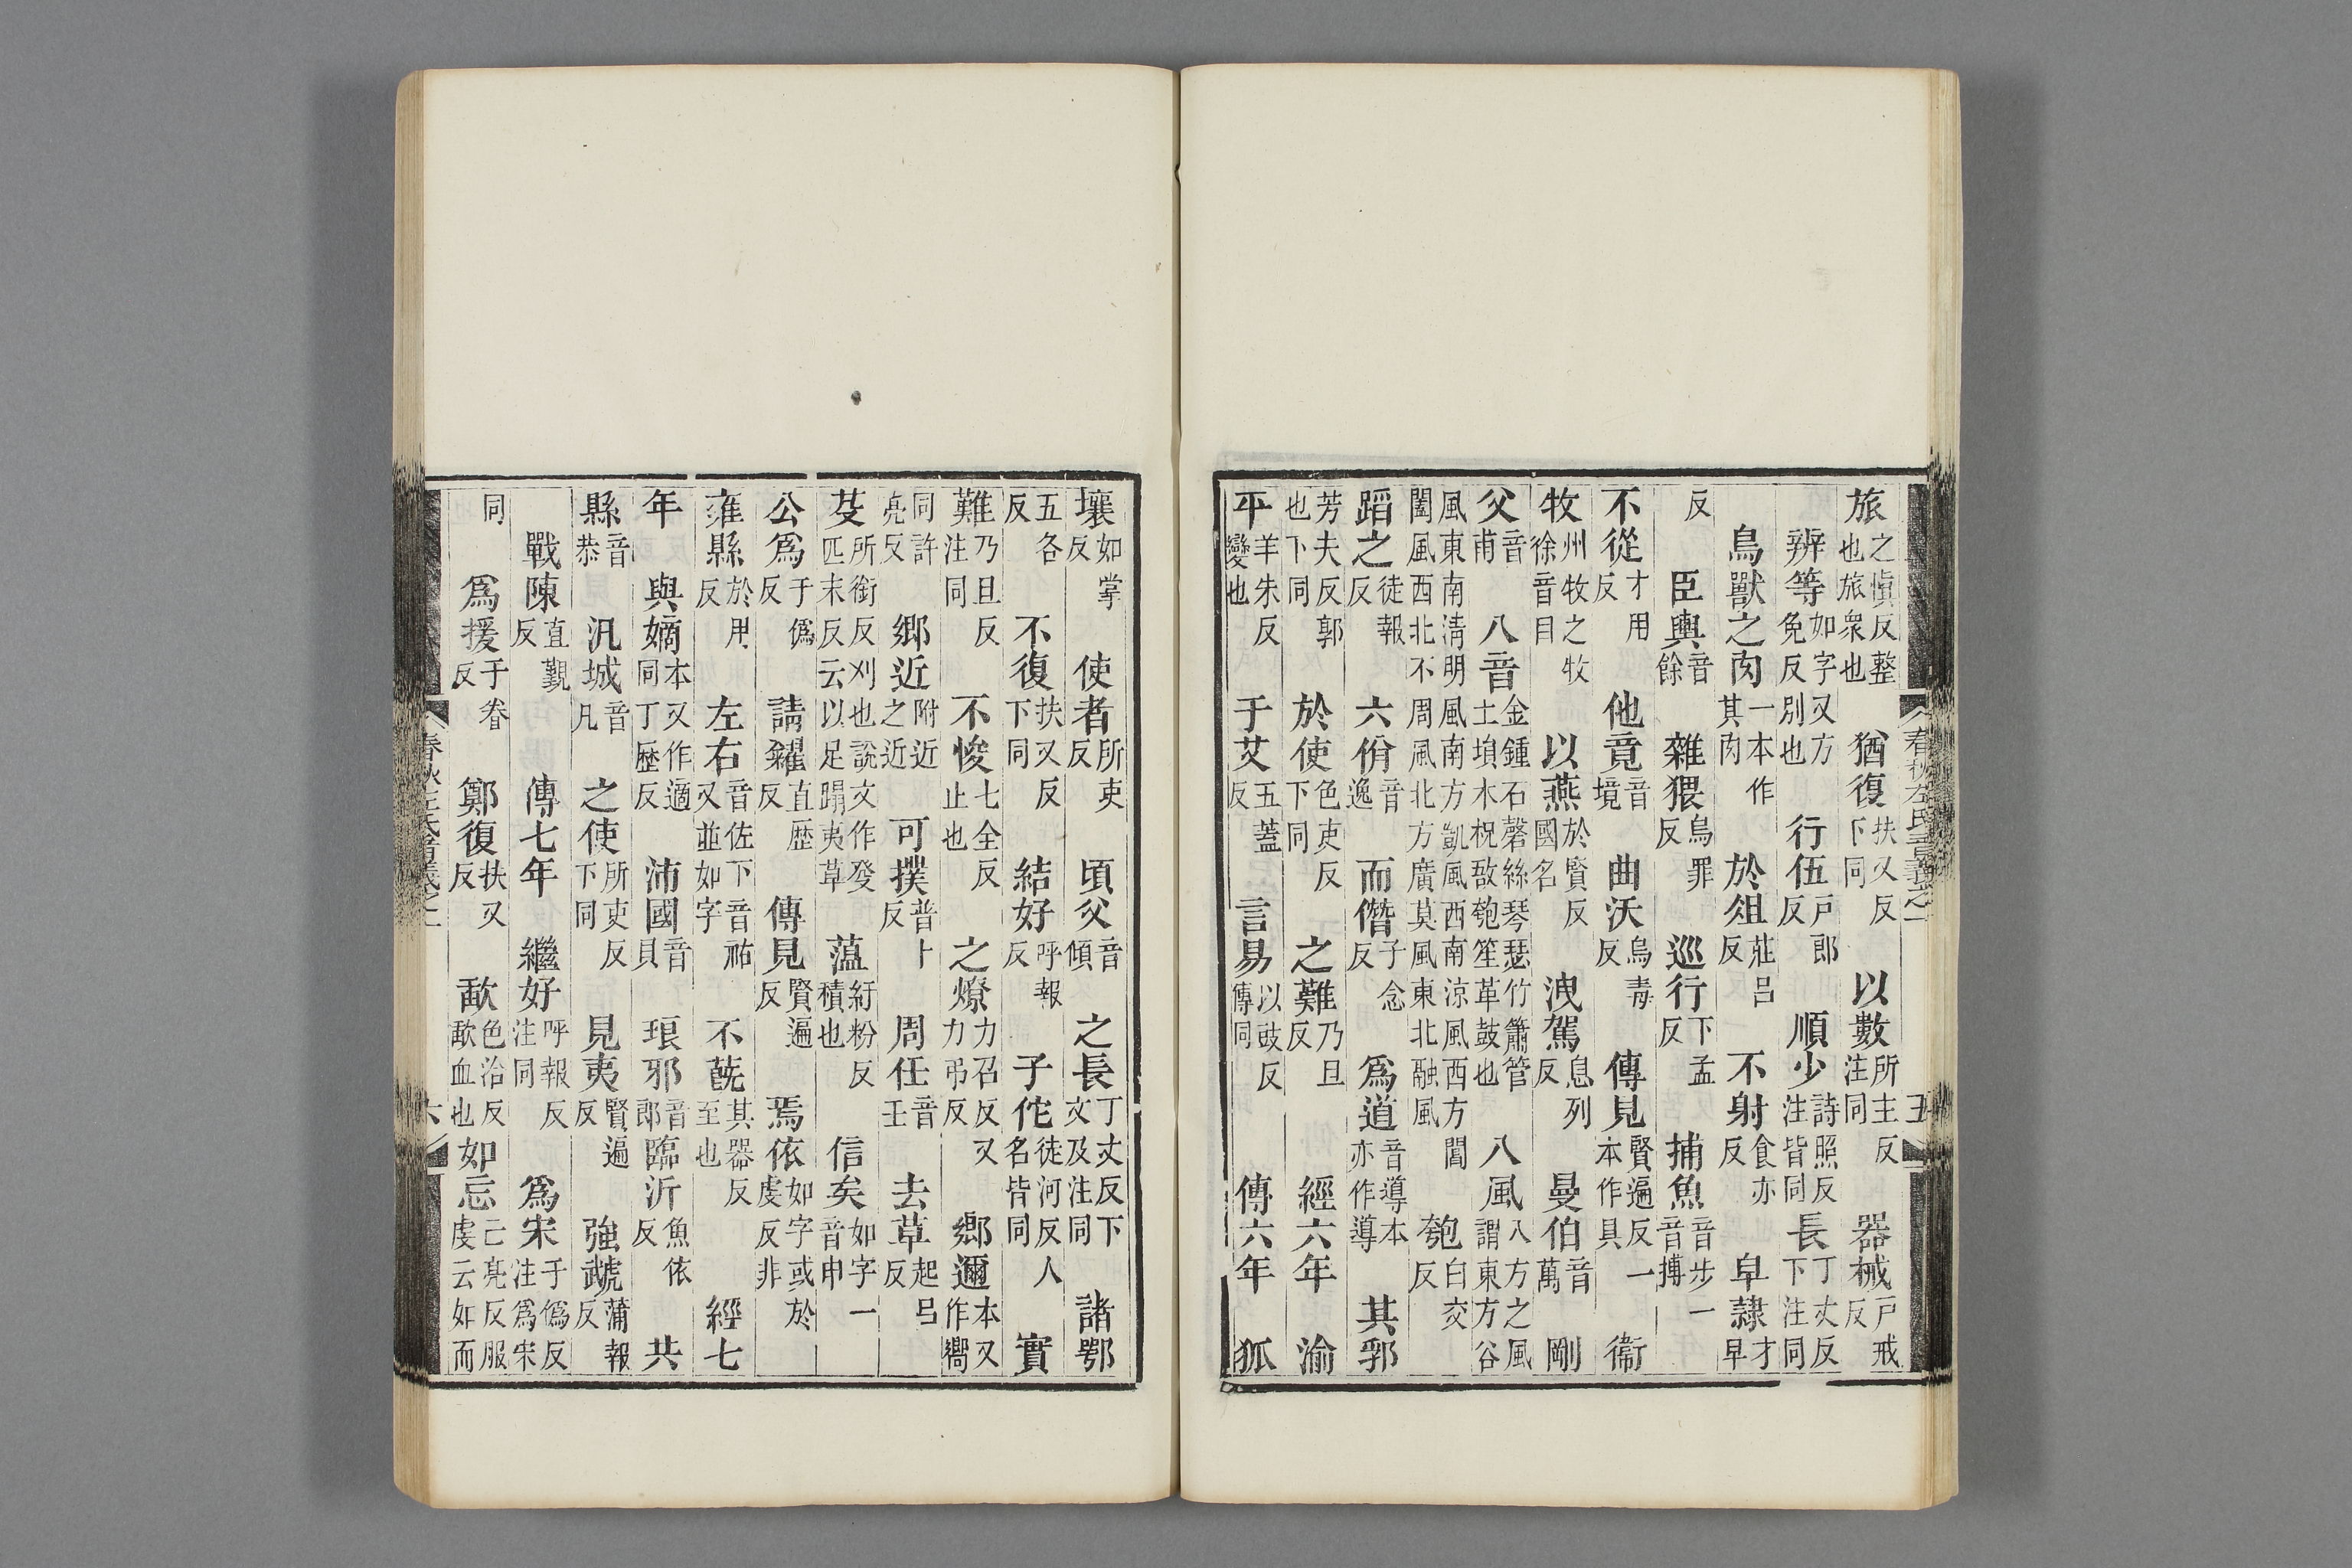 旅之慎反整也旅衆也 猶復扶又反下同 以數所主反注同 器械戸戒反
辨等如字又方免反別也 行伍戸郎反 順少詩照反注皆同 長丁丈反下注同
鳥獸之肉一本作其肉 於俎莊呂反 不射食亦反 皁隷才早
反 臣輿音餘 雜猥烏罪反 巡行下孟反 捕魚音步一音搏
不從才用反 他竟音境 曲沃烏毒反 傳見賢遍反一本作具 衞
牧州牧之牧徐音目 以燕於賢反國名 洩駕息列反 曼伯音萬 剛
父音甫 八音金鍾石磬絲琴瑟竹簫管土塤木柷敔匏笙革鼓也 八風八方之風謂東方谷
風東南淸明風南方凱風西南涼風西方閶闔風西北不周風北方廣莫風東北融風 匏白交反
蹈之徒報反 六佾音逸 而僭子念反 爲道音導本亦作導 其郛
芳夫反郭也下同 於使色吏反下同 之難乃旦反 經六年 渝
平羊朱反變也 于艾五蓋反 言易以豉反傳同 傳六年 狐
春秋左氏音義之一 五
壤如掌反 使者所吏反 頃父音傾 之長丁丈反下文及注同 諸鄂
五各反 不復扶又反下同 結好呼報反 子佗徒河反人名皆同 實
難乃旦反注同 不悛七全反止也 之燎力召反又力弔反 鄉邇本又作嚮
同許亮反 鄉近附近之近 可撲普卜反 周任音壬 去草起呂反
芟所銜反刈也說文作癹匹末反云以足蹋夷草 薀紆粉反積也 信矣如字一音申
公爲于僞反 請糴直歷反 傳見賢遍反 焉依如字或於虔反非
雍縣於用反 左右音佐下音祐又並如字 不蔇其器反至也 經七
年 與嫡本又作適同丁歷反 沛國音貝 琅邪音郎 臨沂魚依反 共
縣音恭 汎城音凡 之使所吏反下同 見夷賢遍反 強虣蒲報反
戰陳直覲反 傳七年 繼好呼報反注同 爲宋于僞反注爲宋
同 爲援于眷反 鄭復扶又反 歃色洽反歃血也 如忘亡亮反服虔云如而
春秋左氏音義之一 六